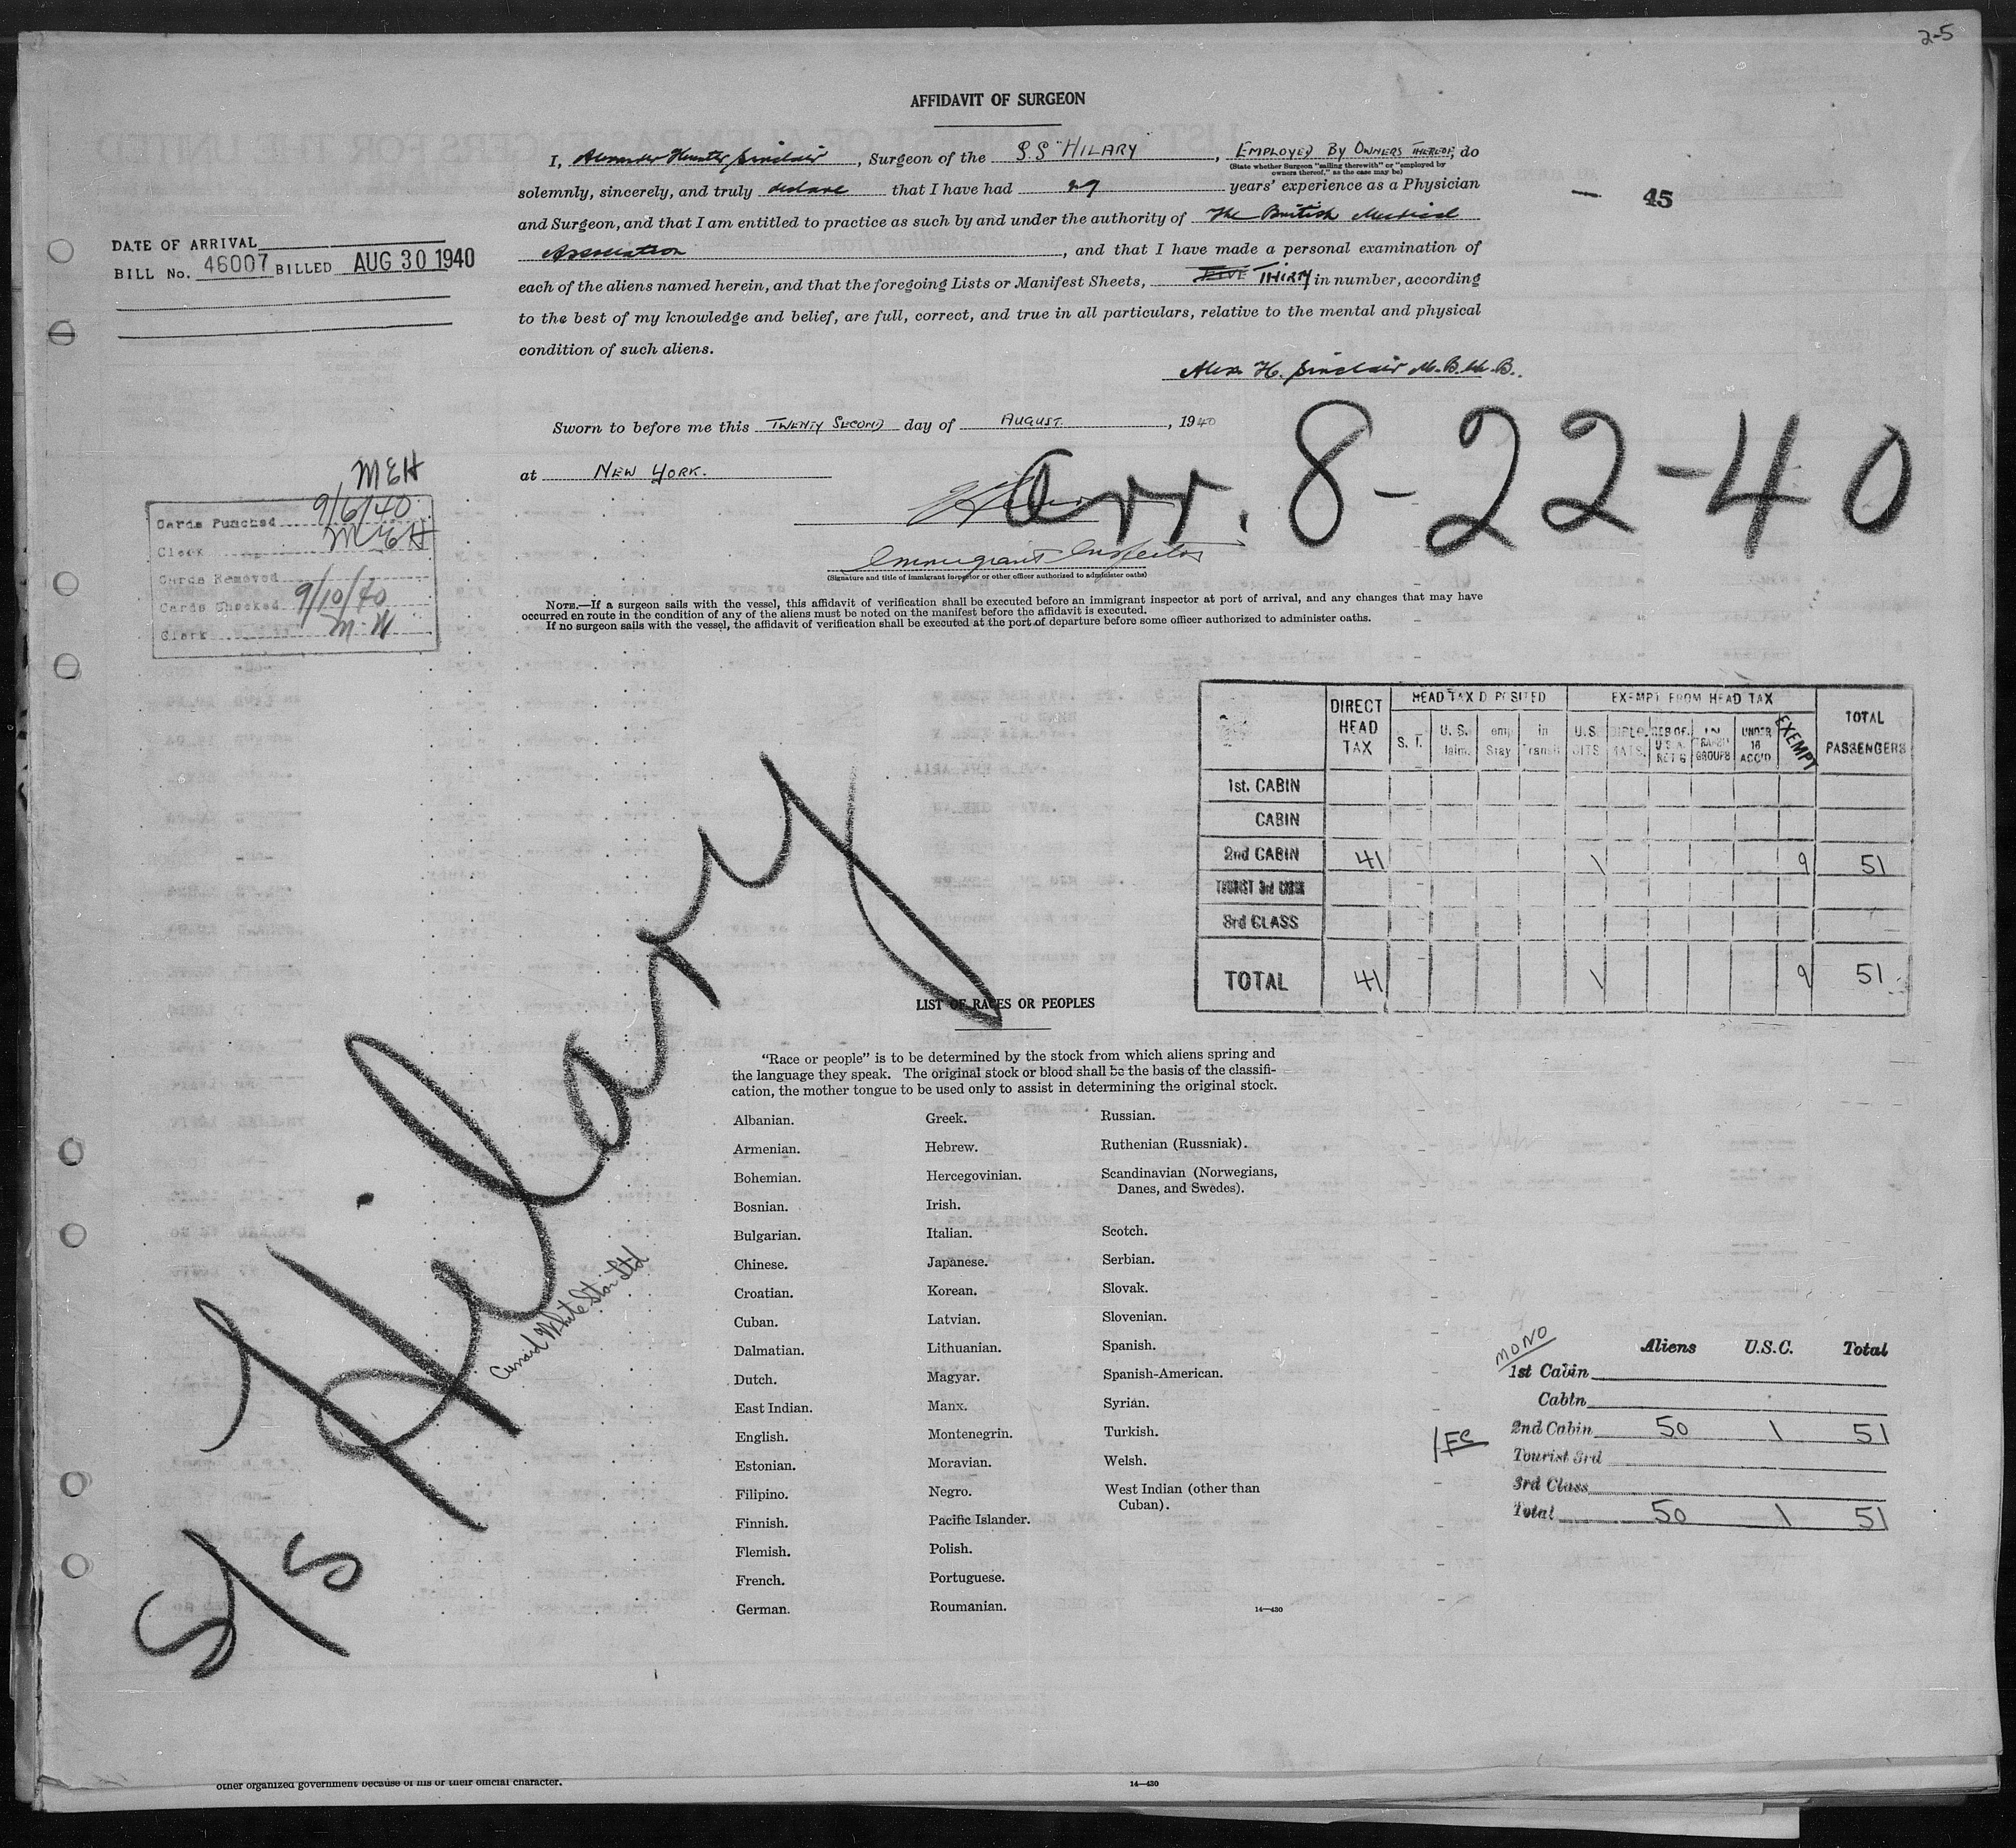 2-5
AFFIDAVIT OF SURGEON
I, Alexander Hunter Sinclair, Surgeon of the S.S "HILARY, EMPLOYED BY OWNERS THEREOF, do
(State whether Surgeon "sailing therewith" or "employed by
owners thereof," as the case may be)
solemnly, sincerely, and truly declare that I have had 29 years' experience as a Physician
— 45
and Surgeon, and that I am entitled to practice as such by and under the authority of The British Medical
Association, and that I have made a personal examination of
each of the aliens named herein, and that the foregoing Lists or Manifest Sheets, FIVE THIRTY in number, according
to the best of my knowledge and belief, are full, correct, and true in all particulars, relative to the mental and physical
condition of such aliens.
DATE OF ARRIVAL
BILL No. 46007 BILLED AUG 30 1940
Alex H. Sinclair M.B. Ch.B.
Sworn to before me this TWENTY SECOND day of AUGUST., 1940
at NEW YORK.
Arr. 8-22-40
Immigrant Inspector
(Signature and title of immigrant inspector or other officer authorized to administer oaths)
MEH
Cards Punched 9/6/40
Clerk MEH
Cards Removed
Cards Checked 9/10/40
Clerk M.W
NOTE.—If a surgeon sails with the vessel, this affidavit of verification shall be executed before an immigrant inspector at port of arrival, and any changes that may have
occurred en route in the condition of any of the aliens must be noted on the manifest before the affidavit is executed.
If no surgeon sails with the vessel, the affidavit of verification shall be executed at the port of departure before some officer authorized to administer oaths.
DIRECT HEAD TAX HEAD TAX D POSITED EXEMPT FROM HEAD TAX TOTAL PASSENGERS
S. I. U. S. laim. emp Stay in Transit U.S. CITS DIPLO MATS. RES OF. U.S.A. RET'G IN TRANSIT GROUPS UNDER 16 ACC'D EXEMPT
1st. CABIN
CABIN
2nd CABIN 41 1 9 51
TOURIST 3rd CABIN
3rd CLASS
TOTAL 41 1 9 51
S/S Hilary
Cunard White Star Ltd
LIST OF RACES OR PEOPLES
"Race or people" is to be determined by the stock from which aliens spring and
the language they speak. The original stock or blood shall be the basis of the classifi-
cation, the mother tongue to be used only to assist in determining the original stock.
Albanian.
Armenian.
Bohemian.
Bosnian.
Bulgarian.
Chinese.
Croatian.
Cuban.
Dalmatian.
Dutch.
East Indian.
English.
Estonian.
Filipino.
Finnish.
Flemish.
French.
German.
Greek.
Hebrew.
Hercegovinian.
Irish.
Italian.
Japanese.
Korean.
Latvian.
Lithuanian.
Magyar.
Manx.
Montenegrin.
Moravian.
Negro.
Pacific Islander.
Polish.
Portuguese.
Roumanian.
Russian.
Ruthenian (Russniak).
Scandinavian (Norwegians,
Danes, and Swedes).
Scotch.
Serbian.
Slovak.
Slovenian.
Spanish.
Spanish-American.
Syrian.
Turkish.
Welsh.
West Indian (other than
Cuban).
14—430
MONO
Aliens U.S.C. Total
1st Cabin
Cabin
2nd Cabin 50 1 51
1 EC
Tourist 3rd
3rd Class
Total 50 1 51
other organized government because of his or their official character.
14—430